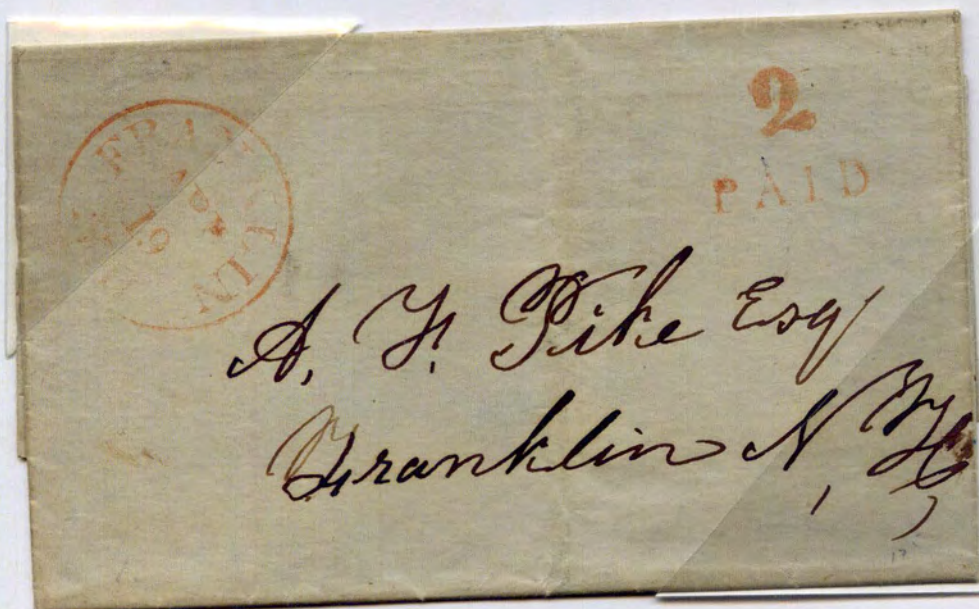 FRANKLIN
16
2
PAID
A. F. Pike Esq
Franklin N. H,